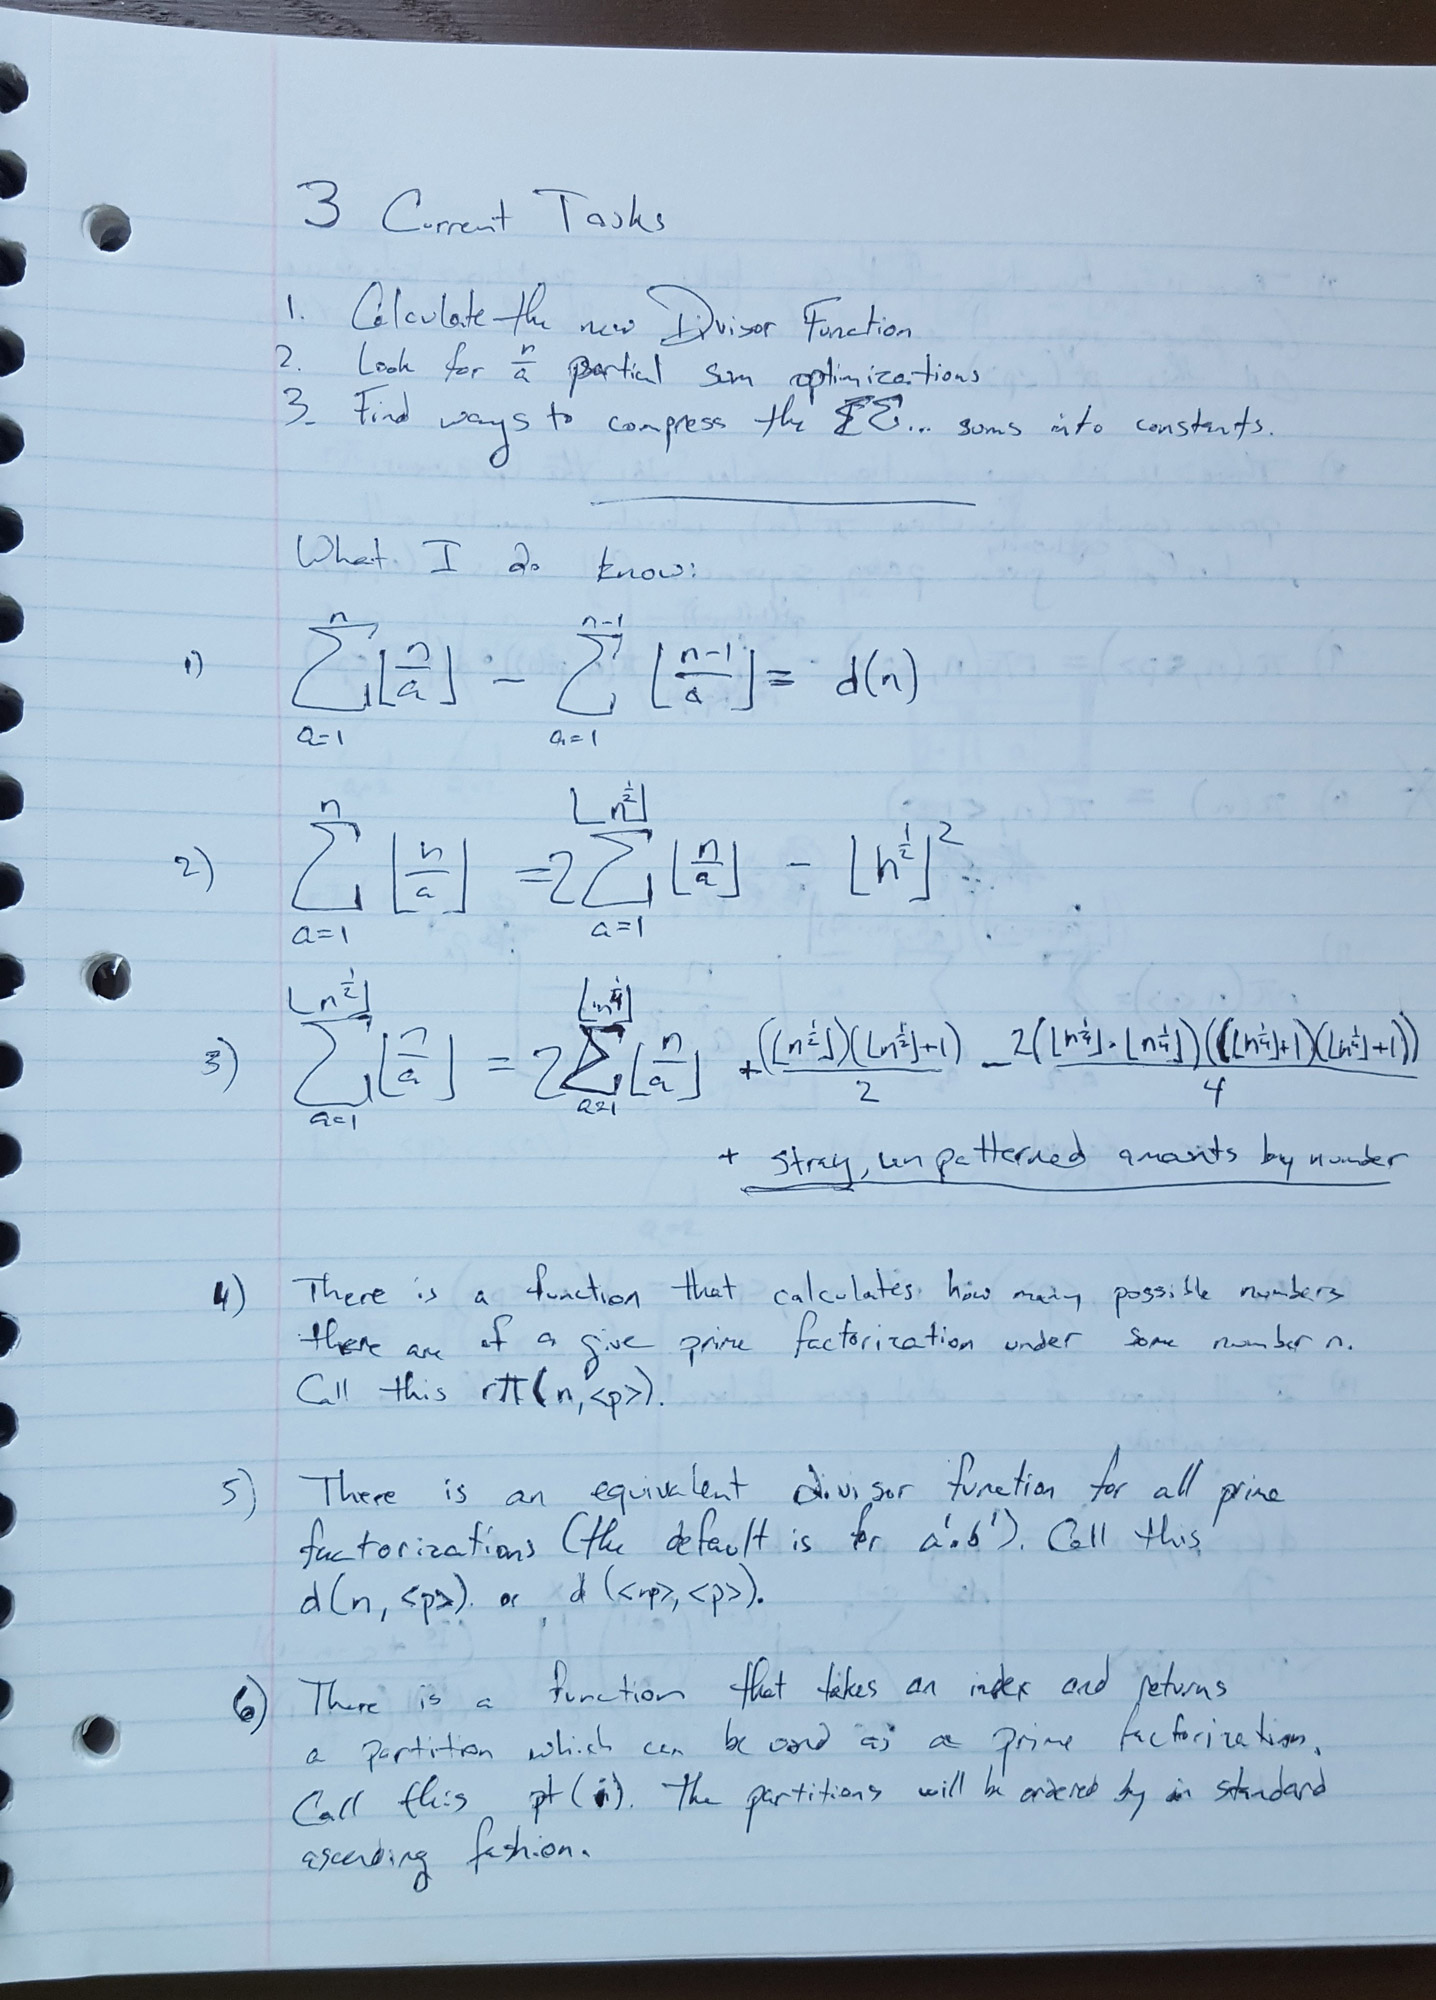 3 Current Tasks
1. Calculate the new Divisor Function
2. Look for n/a partial sum optimizations
3. Find ways to compress the ΣΣ... sums into constants.
What I do know:
1) Σ_{a=1}^{n} ⌊n/a⌋ - Σ_{a=1}^{n-1} ⌊(n-1)/a⌋ = d(n)
2) Σ_{a=1}^{n} ⌊n/a⌋ = 2 Σ_{a=1}^{⌊n^{1/2}⌋} ⌊n/a⌋ - ⌊n^{1/2}⌋²
3) Σ_{a=1}^{⌊n^{1/2}⌋} ⌊n/a⌋ = 2 Σ_{a=1}^{⌊n^{1/4}⌋} ⌊n/a⌋ + (⌊n^{1/2}⌋)(⌊n^{1/2}⌋+1)/2 - 2(⌊n^{1/4}⌋·⌊n^{1/4}⌋)((⌊n^{1/4}⌋+1)(⌊n^{1/4}⌋+1))/4
+ stray, unpatterned amounts by number
4) There is a function that calculates how many possible numbers
there are of a give prime factorization under some number n.
Call this rπ(n,<p>).
5) There is an equivalent divisor function for all prime
factorizations (the default is for a¹·b¹). Call this
d(n,<p>) or d(<np>,<p>).
6) There is a function that takes an index and returns
a partition which can be used as a prime factorization.
Call this pt(i). The partitions will be ordered by in standard
ascending fashion.